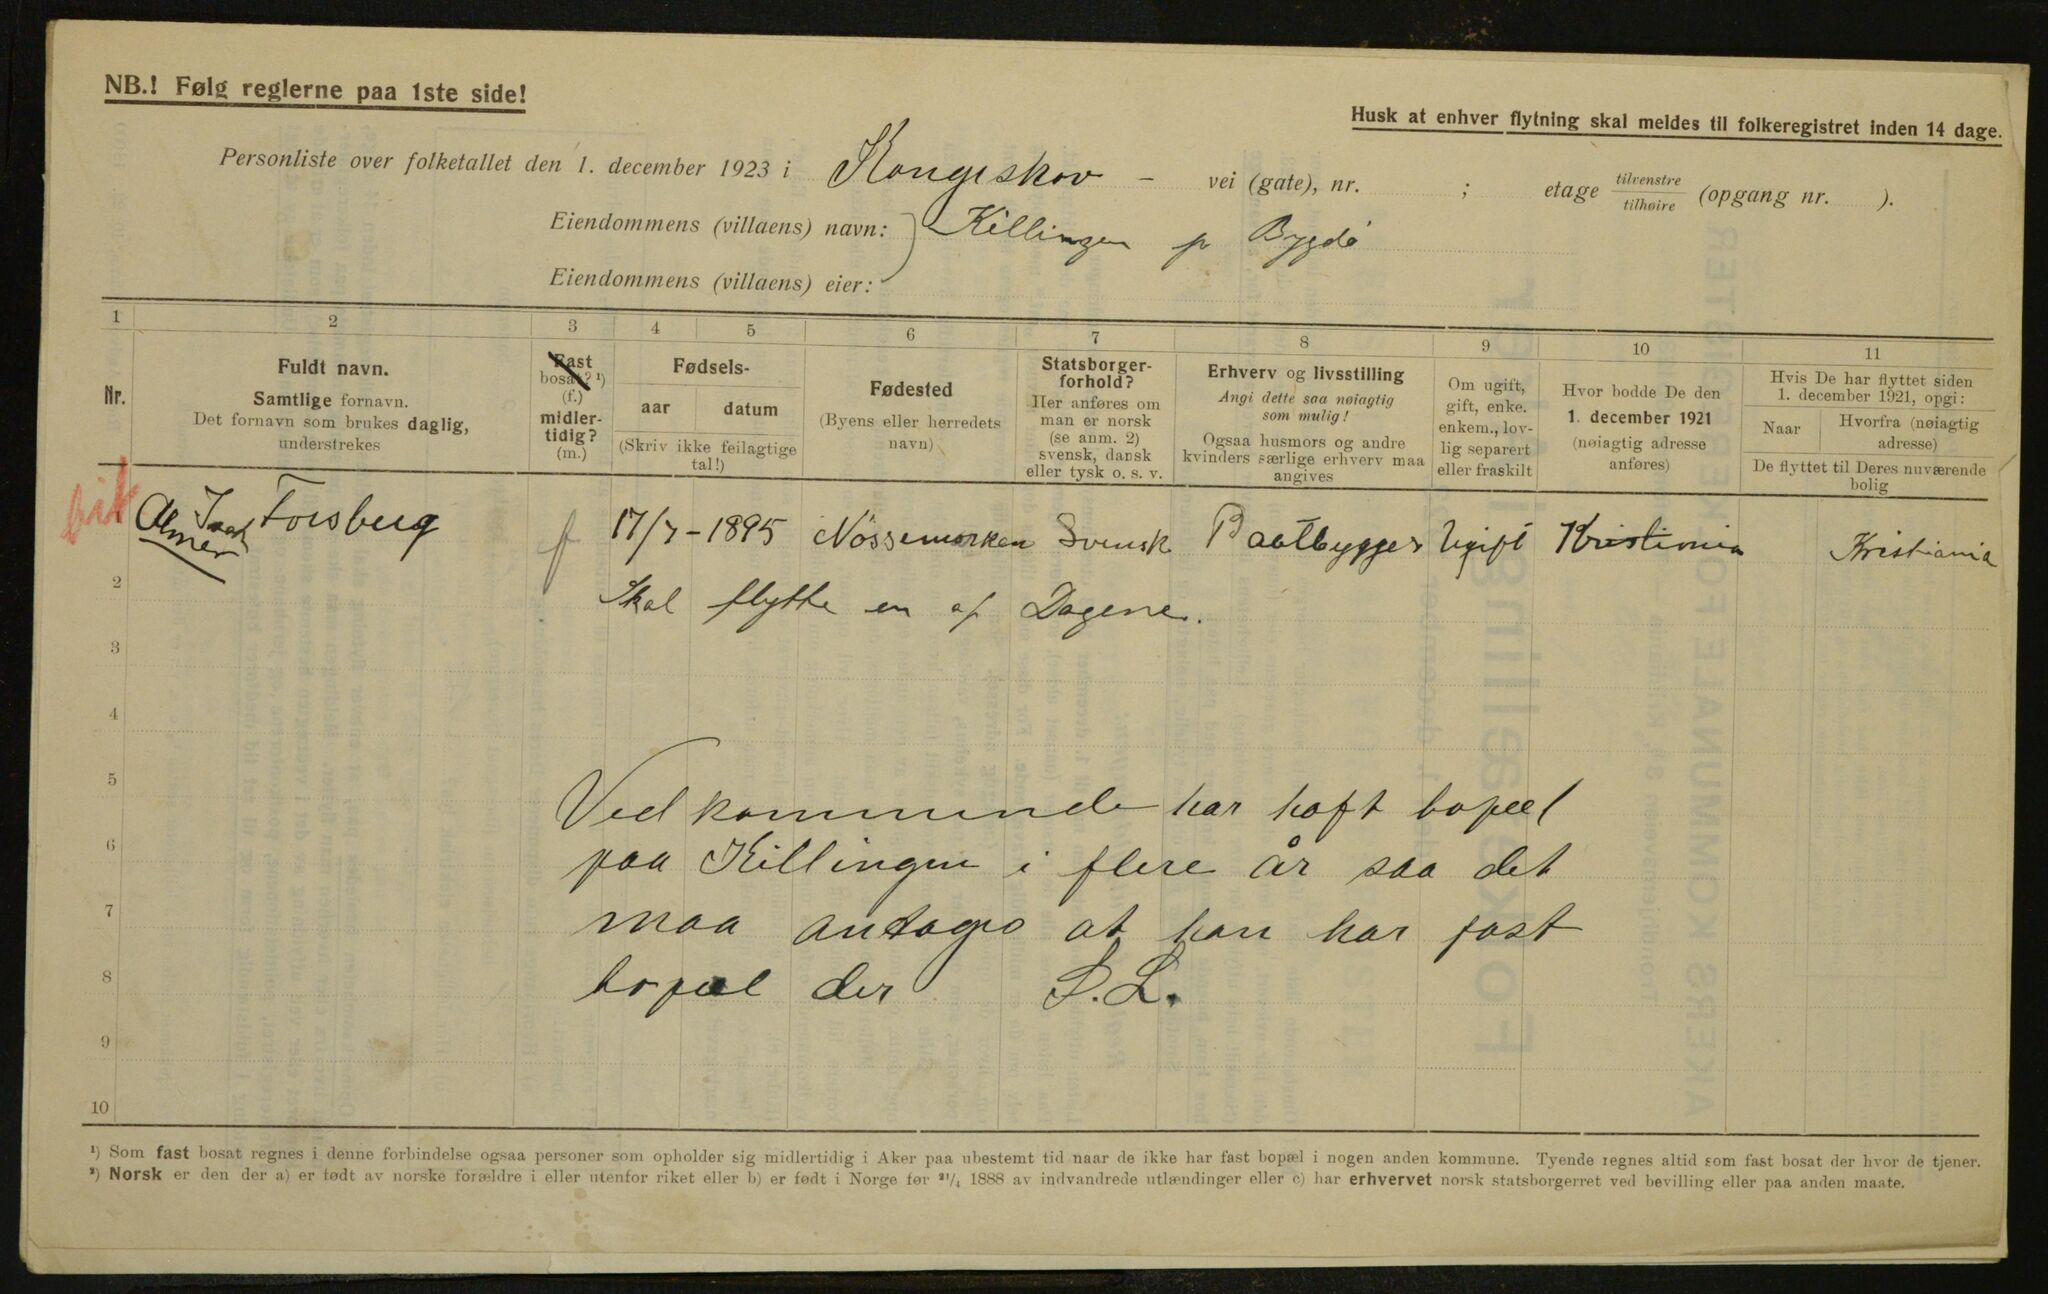 NB.! Følg reglerne paa 1ste side!
Husk at enhver flytning skal meldes til folkeregistret inden 14 dage.
Personliste over folketallet den 1. december 1923 i Kongeskov - vei (gate), nr. ; etage tilvenstre tilhøire (opgang nr. ).
Eiendommens (villaens) navn: Killingen p Bygdö
Eiendommens (villaens) eier:
1 2 3 4 5 6 7 8 9 10 11
Nr.
Fuldt navn.
Samtlige fornavn.
Det fornavn som brukes daglig,
understrekes
Fast
bosat? ¹)
(f.)
midler-
tidig?
(m.)
Fødsels-
aar datum
(Skriv ikke feilagtige
tal!)
Fødested
(Byens eller herredets
navn)
Statsborger-
forhold?
Her anføres om
man er norsk
(se anm. 2)
svensk, dansk
eller tysk o. s. v.
Erhverv og livsstilling
Angi dette saa nøiagtig
som mulig!
Ogsaa husmors og andre
kvinders særlige erhverv maa
angives
Om ugift,
gift, enke.
enkem., lov-
lig separert
eller fraskilt
Hvor bodde De den
1. december 1921
(nøiagtig adresse
anføres)
Hvis De har flyttet siden
1. december 1921, opgi:
Naar Hvorfra (nøiagtig
adresse)
De flyttet til Deres nuværende
bolig
Forsberg f 17/7-1895 Nössemarken Svensk Baatbygger Ugift Kristiania Kristiania
Almer
2 Skal flytte en af Dagene.
3
4
5 Vedkommende har haft bopæl
6 paa Killingen i flere år saa det
7 maa antages at han har fast
8 bopæl der S.L.
9
10
¹) Som fast bosat regnes i denne forbindelse ogsaa personer som opholder sig midlertidig i Aker paa ubestemt tid naar de ikke har fast bopæl i nogen anden kommune. Tyende regnes altid som fast bosat der hvor de tjener.
²) Norsk er den der a) er født av norske forældre i eller utenfor riket eller b) er født i Norge før ²¹/₄ 1888 av indvandrede utlændinger eller c) har erhvervet norsk statsborgerret ved bevilling eller paa anden maate.